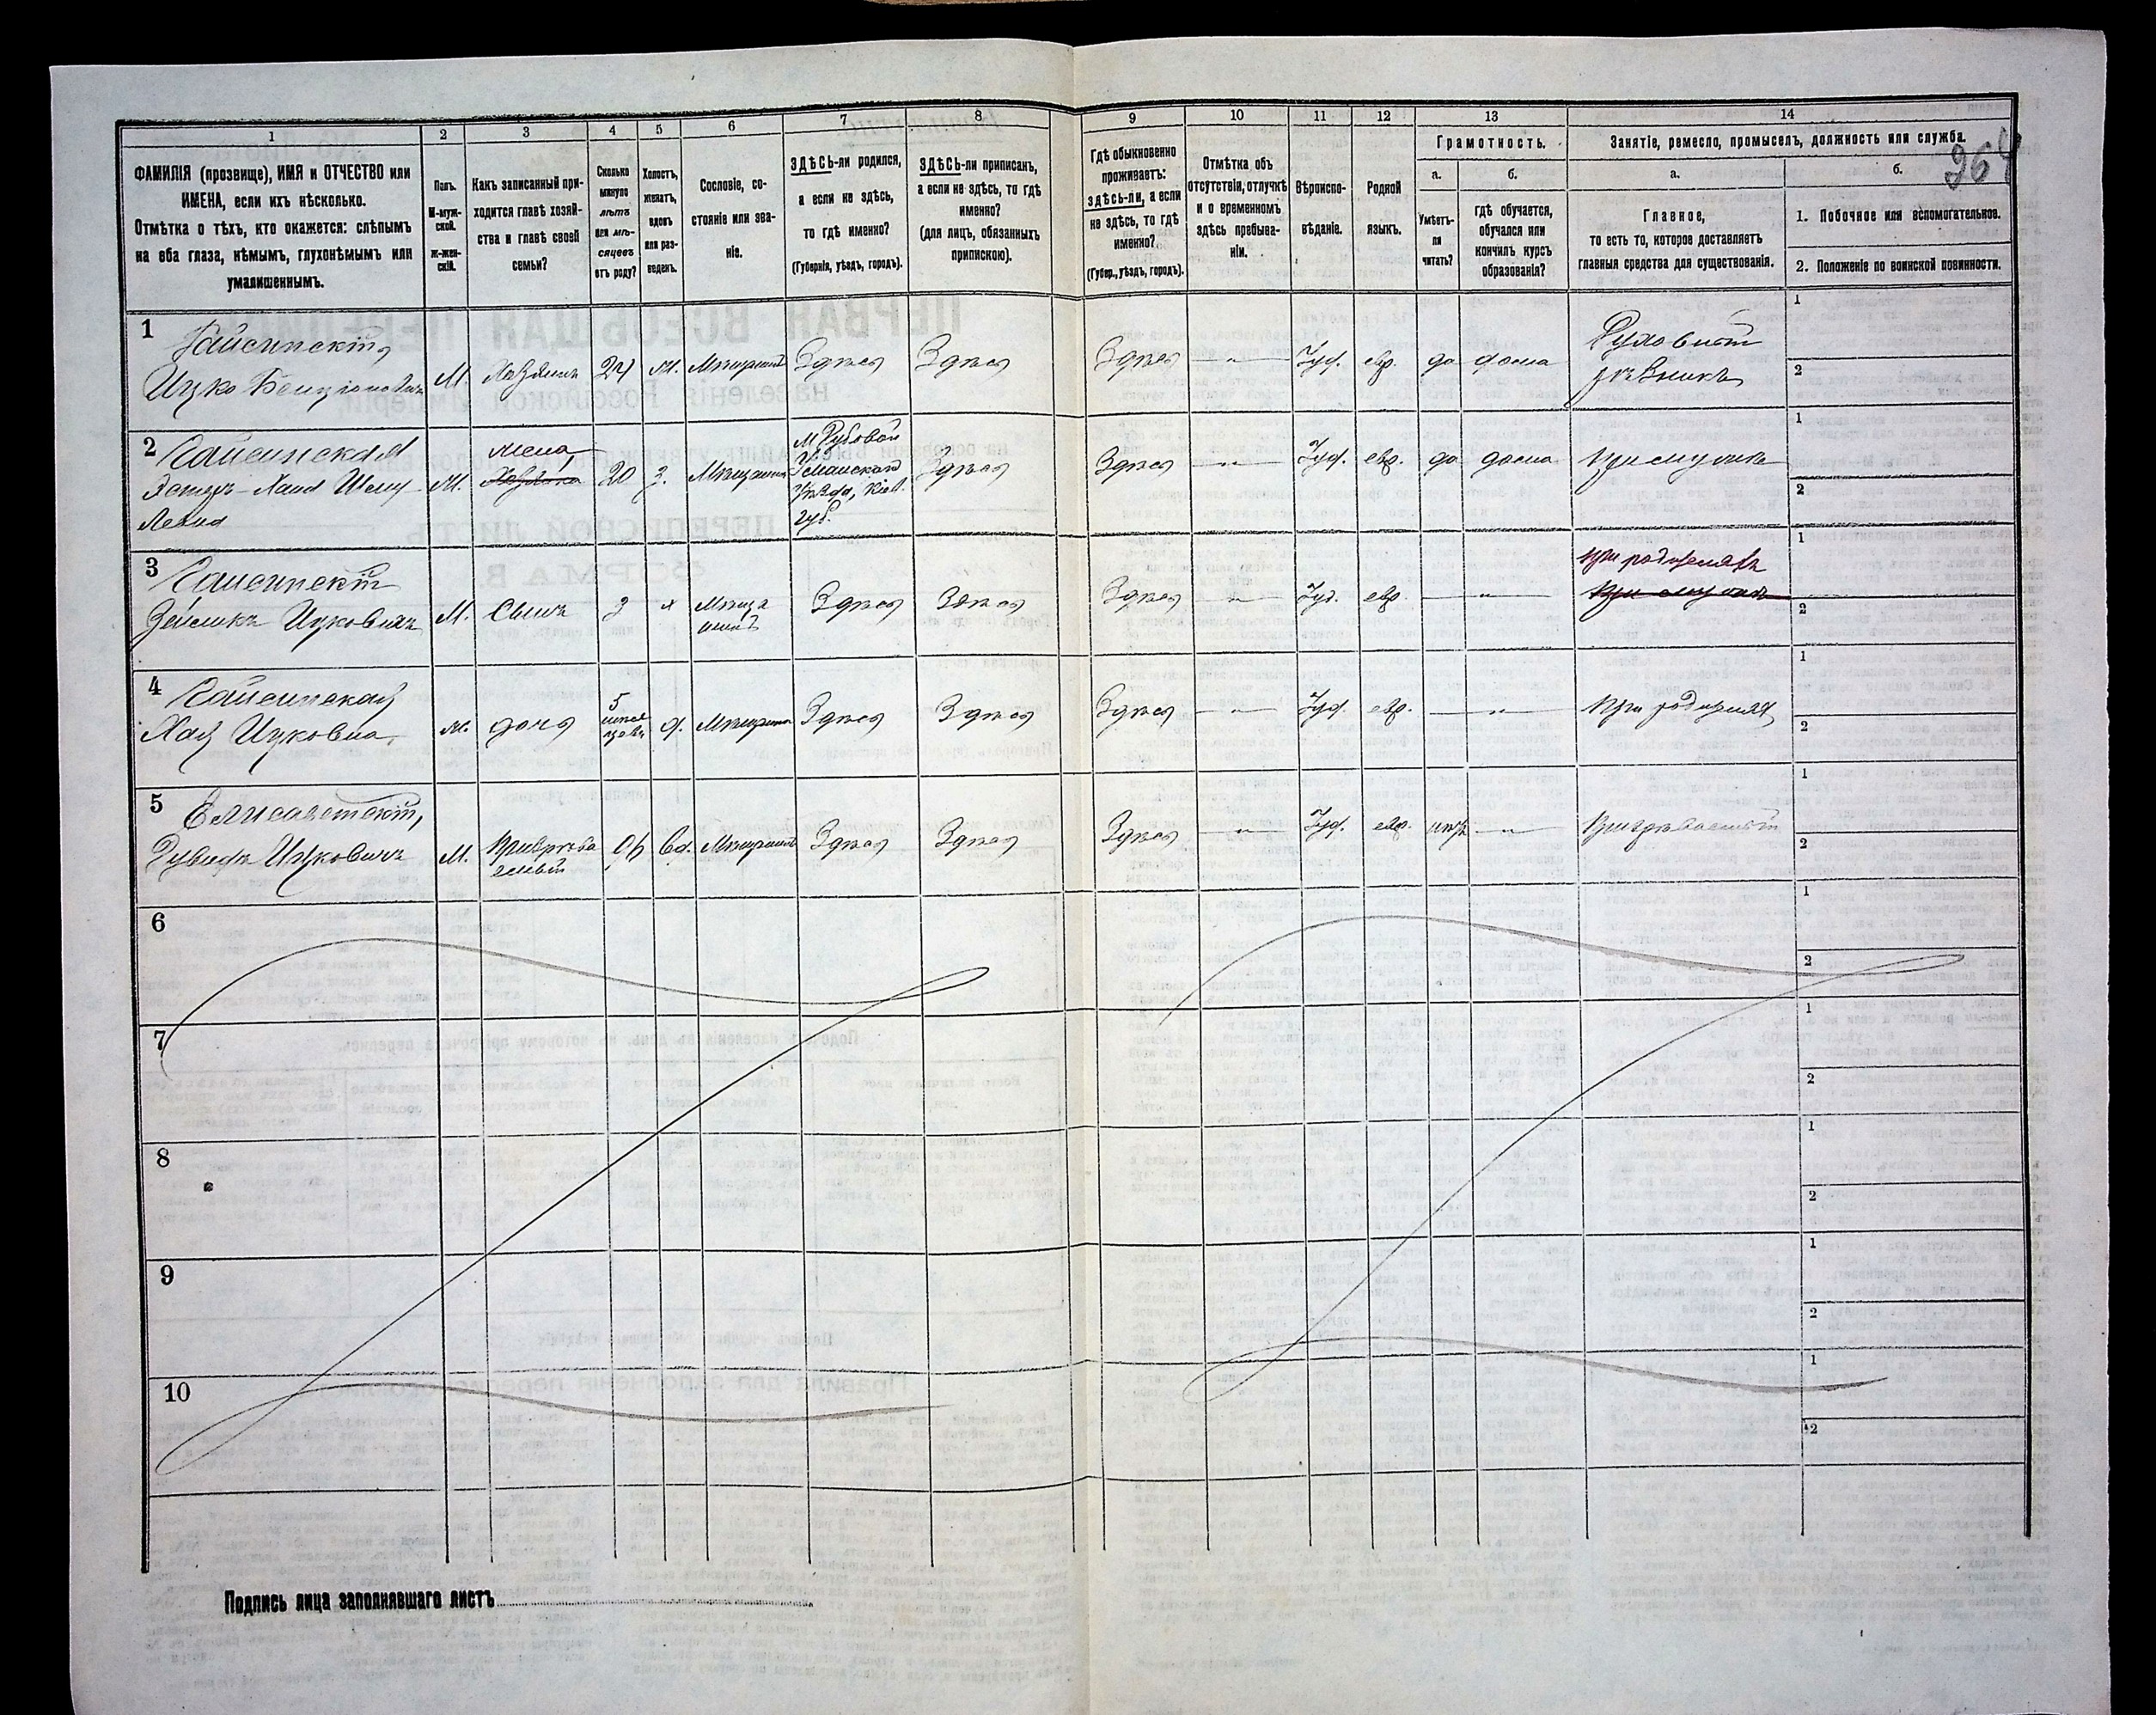 964
1
2
3
4
5
6
7
8
9
10
11
12
13
14
ФАМИЛІЯ (прозвище), ИМЯ и ОТЧЕСТВО или
ИМЕНА, если ихъ нѣсколько.
Отмѣтка о тѣхъ, кто окажется: слѣпымъ
на оба глаза, нѣмымъ, глухонѣмымъ или
умалишеннымъ.
Полъ.
М-муж-
ской.
Ж-жен-
скій.
Какъ записанный при-
ходится главѣ хозяй-
ства и главѣ своей
семьи?
Сколько
минуло
лѣтъ
или мѣ-
сяцевъ
отъ роду?
Холостъ,
женатъ,
вдовъ
или раз-
веденъ.
Сословіе, со-
стояніе или зва-
ніе.
ЗДѢСЬ-ли родился,
а если не здѣсь,
то гдѣ именно?
(Губернія, уѣздъ, городъ).
ЗДѢСЬ-ли приписанъ,
а если не здѣсь, то гдѣ
именно?
(для лицъ, обязанныхъ
припискою).
Гдѣ обыкновенно
проживаетъ:
здѣсь-ли, а если
не здѣсь, то гдѣ
именно?
(Губер., уѣздъ, городъ).
Отмѣтка объ
отсутствіи, отлучкѣ
и о временномъ
здѣсь пребыва-
ніи.
Вѣроиспо-
вѣданіе.
Родной
языкъ.
Грамотность.
а.
Умѣетъ-
ли
читать?
б.
гдѣ обучается,
обучался или
кончилъ курсъ
образованія?
Занятіе, ремесло, промыселъ, должность или служба.
а.
Главное,
то есть то, которое доставляетъ
главныя средства для существованія.
б.
1. Побочное или вспомогательное.
2. Положеніе по воинской повинности.
1
Гайсинскій,
Ицко Бенціоновичъ
М. Хозяинъ 24 Мѣщанинъ Здѣсь Здѣсь
Здѣсь — „ — Іуд. евр. да дома
Духовный
рѣзникъ
1
2
2
Гайсинская
Эстеръ-Хана Шму-
левна
М.
жена
Хозяина
20 Мѣщанка
Уманскаго
уѣзда, Кіев.
губ.
Здѣсь
Здѣсь — „ — Іуд. евр. да дома при мужѣ
1
2
3
Гайсинскій
Зейликъ Ицковичъ
М. Сынъ х
Мѣща
нинъ
Здѣсь Здѣсь
Здѣсь — „ — Іуд. евр. — „ —
при родителяхъ
1
2
4
Гайсинская
Хая Ицковна
М. дочь
5
мѣся
цевъ
д. Мѣщанка Здѣсь Здѣсь
Здѣсь — „ — Іуд. евр. — „ — при родителях
1
2
5
Елисаветскій,
Рувинъ Ицковичъ
М.
Призрѣва
емый
вд. Мѣщанинъ Здѣсь Здѣсь
Здѣсь — „ — Іуд. евр. нѣтъ — „ — Призрѣваемый
1
2
6
1
2
7
1
2
8
1
2
9
1
2
10
1
2
Подпись лица заполнявшаго листъ